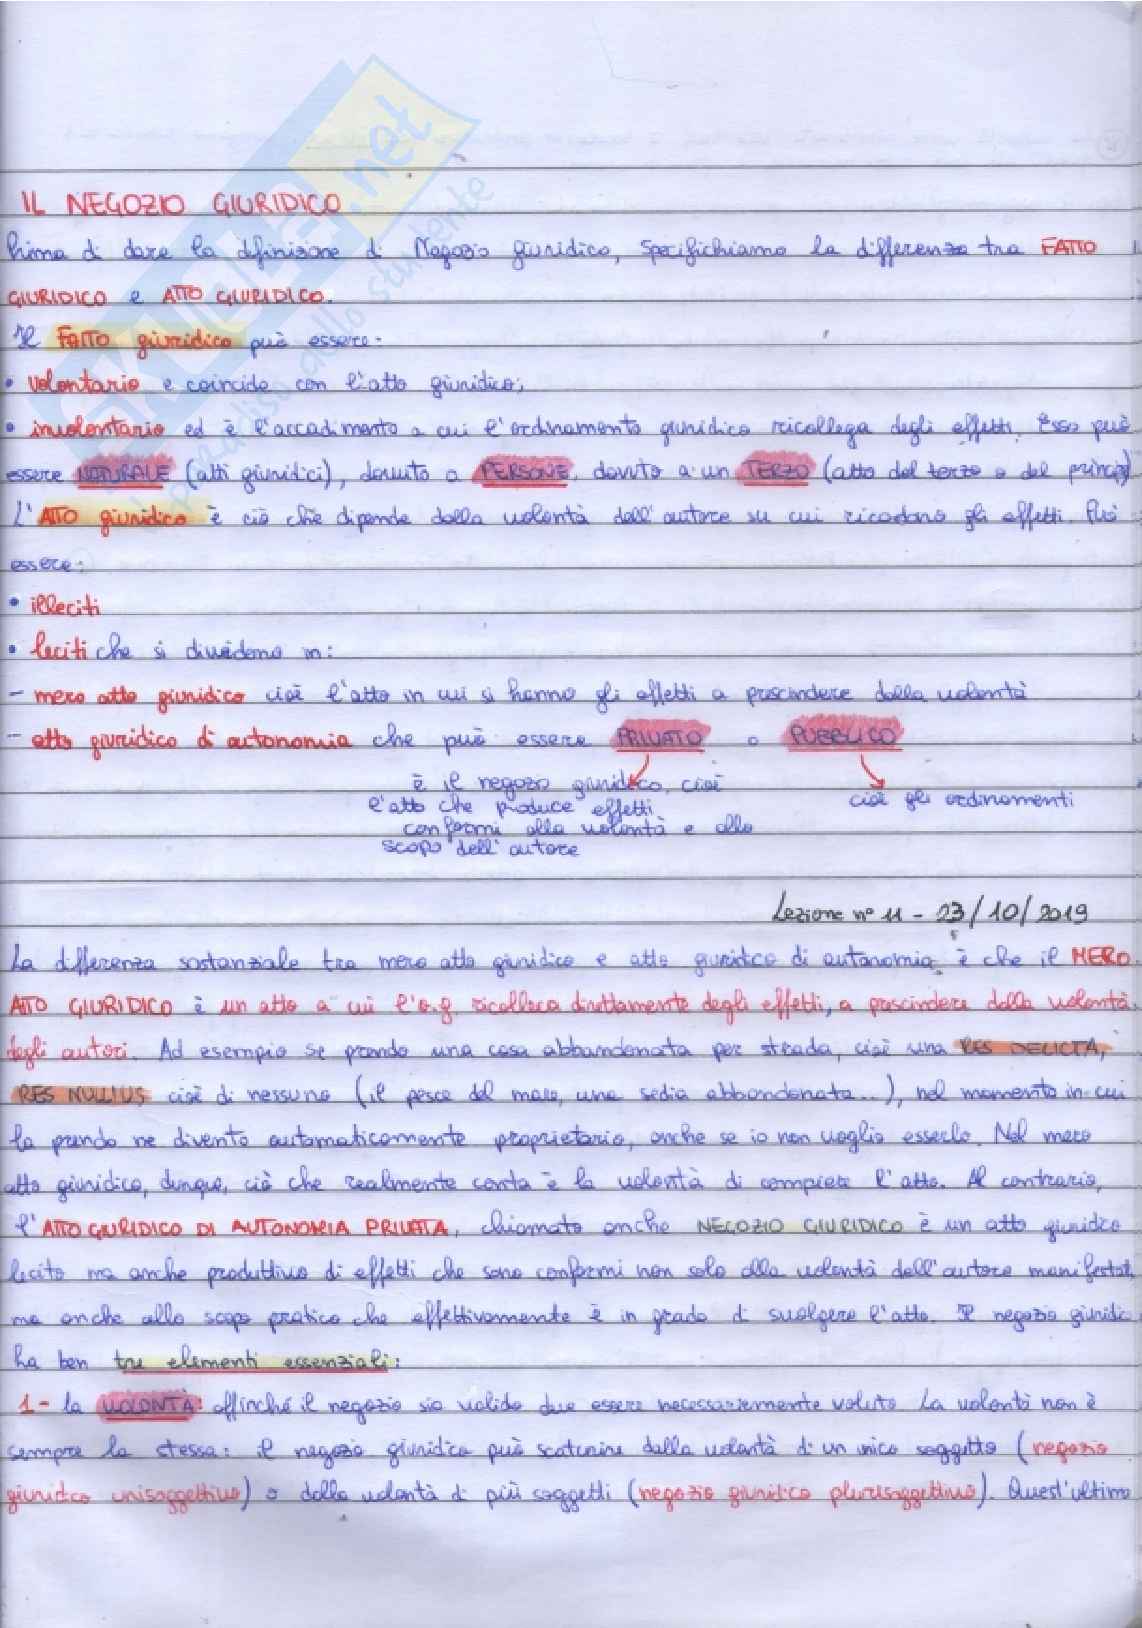 SKUOLA.net
il paradiso dello studente
IL NEGOZIO GIURIDICO
Prima di dare la definizione di Negozio giuridico, specifichiamo la differenza tra FATTO
GIURIDICO e ATTO GIURIDICO.
Il FATTO giuridico può essere:
• volontario e coincide con l'atto giuridico;
• involontario ed è l'accadimento a cui l'ordinamento giuridico ricollega degli effetti. Esso può
essere NATURALE (atti giuridici), dovuto a PERSONE, dovuto a un TERZO (atto del terzo o del princip)
L'ATTO giuridico è ciò che dipende dalla volontà dell'autore su cui ricadono gli effetti. Può
essere:
• illeciti
• leciti che si dividono in:
- mero atto giuridico cioè l'atto in cui si hanno gli effetti a prescindere dalla volontà
- atto giuridico di autonomia che può essere PRIVATO o PUBBLICO
è il negozio giuridico, cioè
l'atto che produce effetti
conformi alla volontà e allo
scopo dell'autore
cioè gli ordinamenti
Lezione n° 11 - 23/10/2019
La differenza sostanziale tra mero atto giuridico e atto giuridico di autonomia è che il MERO
ATTO GIURIDICO è un atto a cui l'o.g. ricollega direttamente degli effetti, a prescindere dalla volontà
degli autori. Ad esempio se prendo una cosa abbandonata per strada, cioè una RES DELICTA,
RES NULLIUS cioè di nessuno (il pesce del mare, una sedia abbandonata...), nel momento in cui
la prendo ne divento automaticamente proprietario, anche se io non voglio esserlo. Nel mero
atto giuridico, dunque, ciò che realmente conta è la volontà di compiere l'atto. Al contrario,
l'ATTO GIURIDICO DI AUTONOMIA PRIVATA, chiamato anche NEGOZIO GIURIDICO è un atto giuridico
lecito ma anche produttivo di effetti che sono conformi non solo alla volontà dell'autore manifestat
ma anche allo scopo pratico che effettivamente è in grado di svolgere l'atto. Il negozio giuridic
ha ben tre elementi essenziali:
1- la VOLONTÀ: affinché il negozio sia valido deve essere necessariamente voluto. La volontà non è
sempre la stessa: il negozio giuridico può scaturire dalla volontà di un unico soggetto (negozio
giuridico unisoggettivo) o dalla volontà di più soggetti (negozio giuridico plurisoggettivo). Quest'ultimo